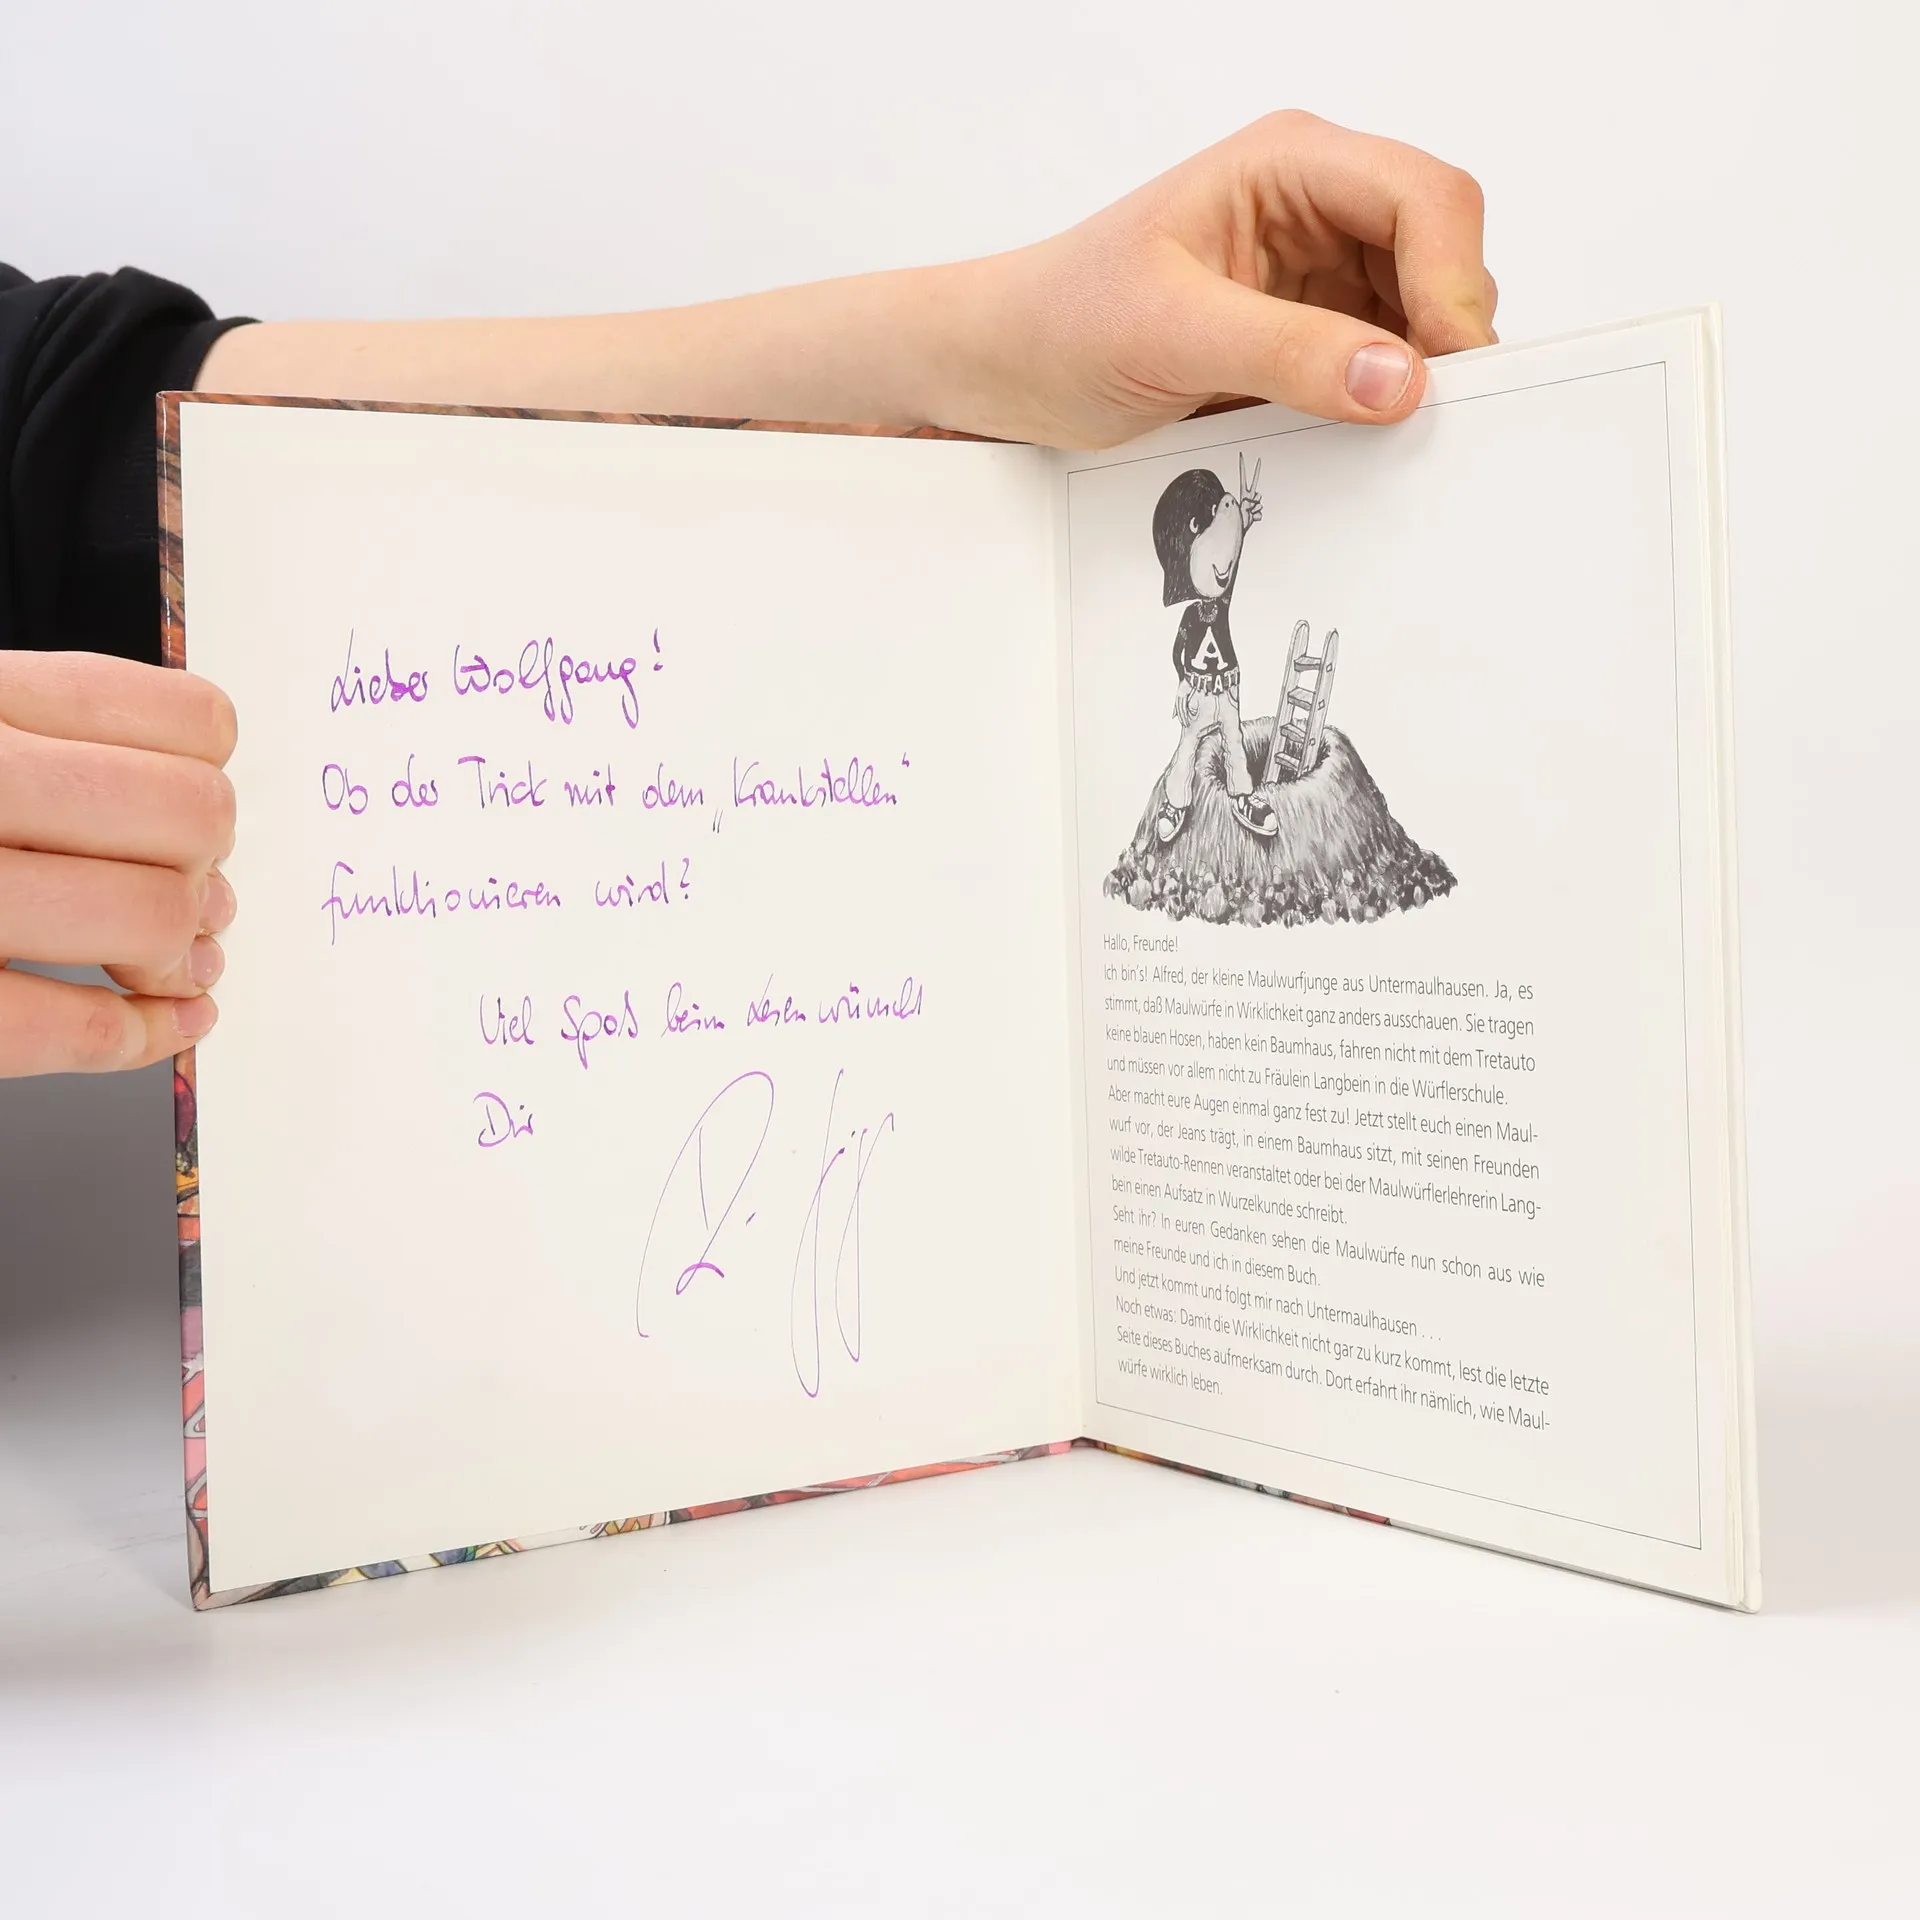 Lieber Wolfgang!
Ob der Trick mit dem „Krankstellen“
funktionieren wird?
Viel Spaß beim Lesen wünscht
Dir
A
Hallo, Freunde!
Ich bin's! Alfred, der kleine Maulwurfjunge aus Untermaulhausen. Ja, es
stimmt, daß Maulwürfe in Wirklichkeit ganz anders ausschauen. Sie tragen
keine blauen Hosen, haben kein Baumhaus, fahren nicht mit dem Tretauto
und müssen vor allem nicht zu Fräulein Langbein in die Würflerschule.
Aber macht eure Augen einmal ganz fest zu! Jetzt stellt euch einen Maul-
wurf vor, der Jeans trägt, in einem Baumhaus sitzt, mit seinen Freunden
wilde Tretauto-Rennen veranstaltet oder bei der Maulwürflerlehrerin Lang-
bein einen Aufsatz in Wurzelkunde schreibt.
Seht ihr? In euren Gedanken sehen die Maulwürfe nun schon aus wie
meine Freunde und ich in diesem Buch.
Und jetzt kommt und folgt mir nach Untermaulhausen . . .
Noch etwas: Damit die Wirklichkeit nicht gar zu kurz kommt, lest die letzte
Seite dieses Buches aufmerksam durch. Dort erfahrt ihr nämlich, wie Maul-
würfe wirklich leben.